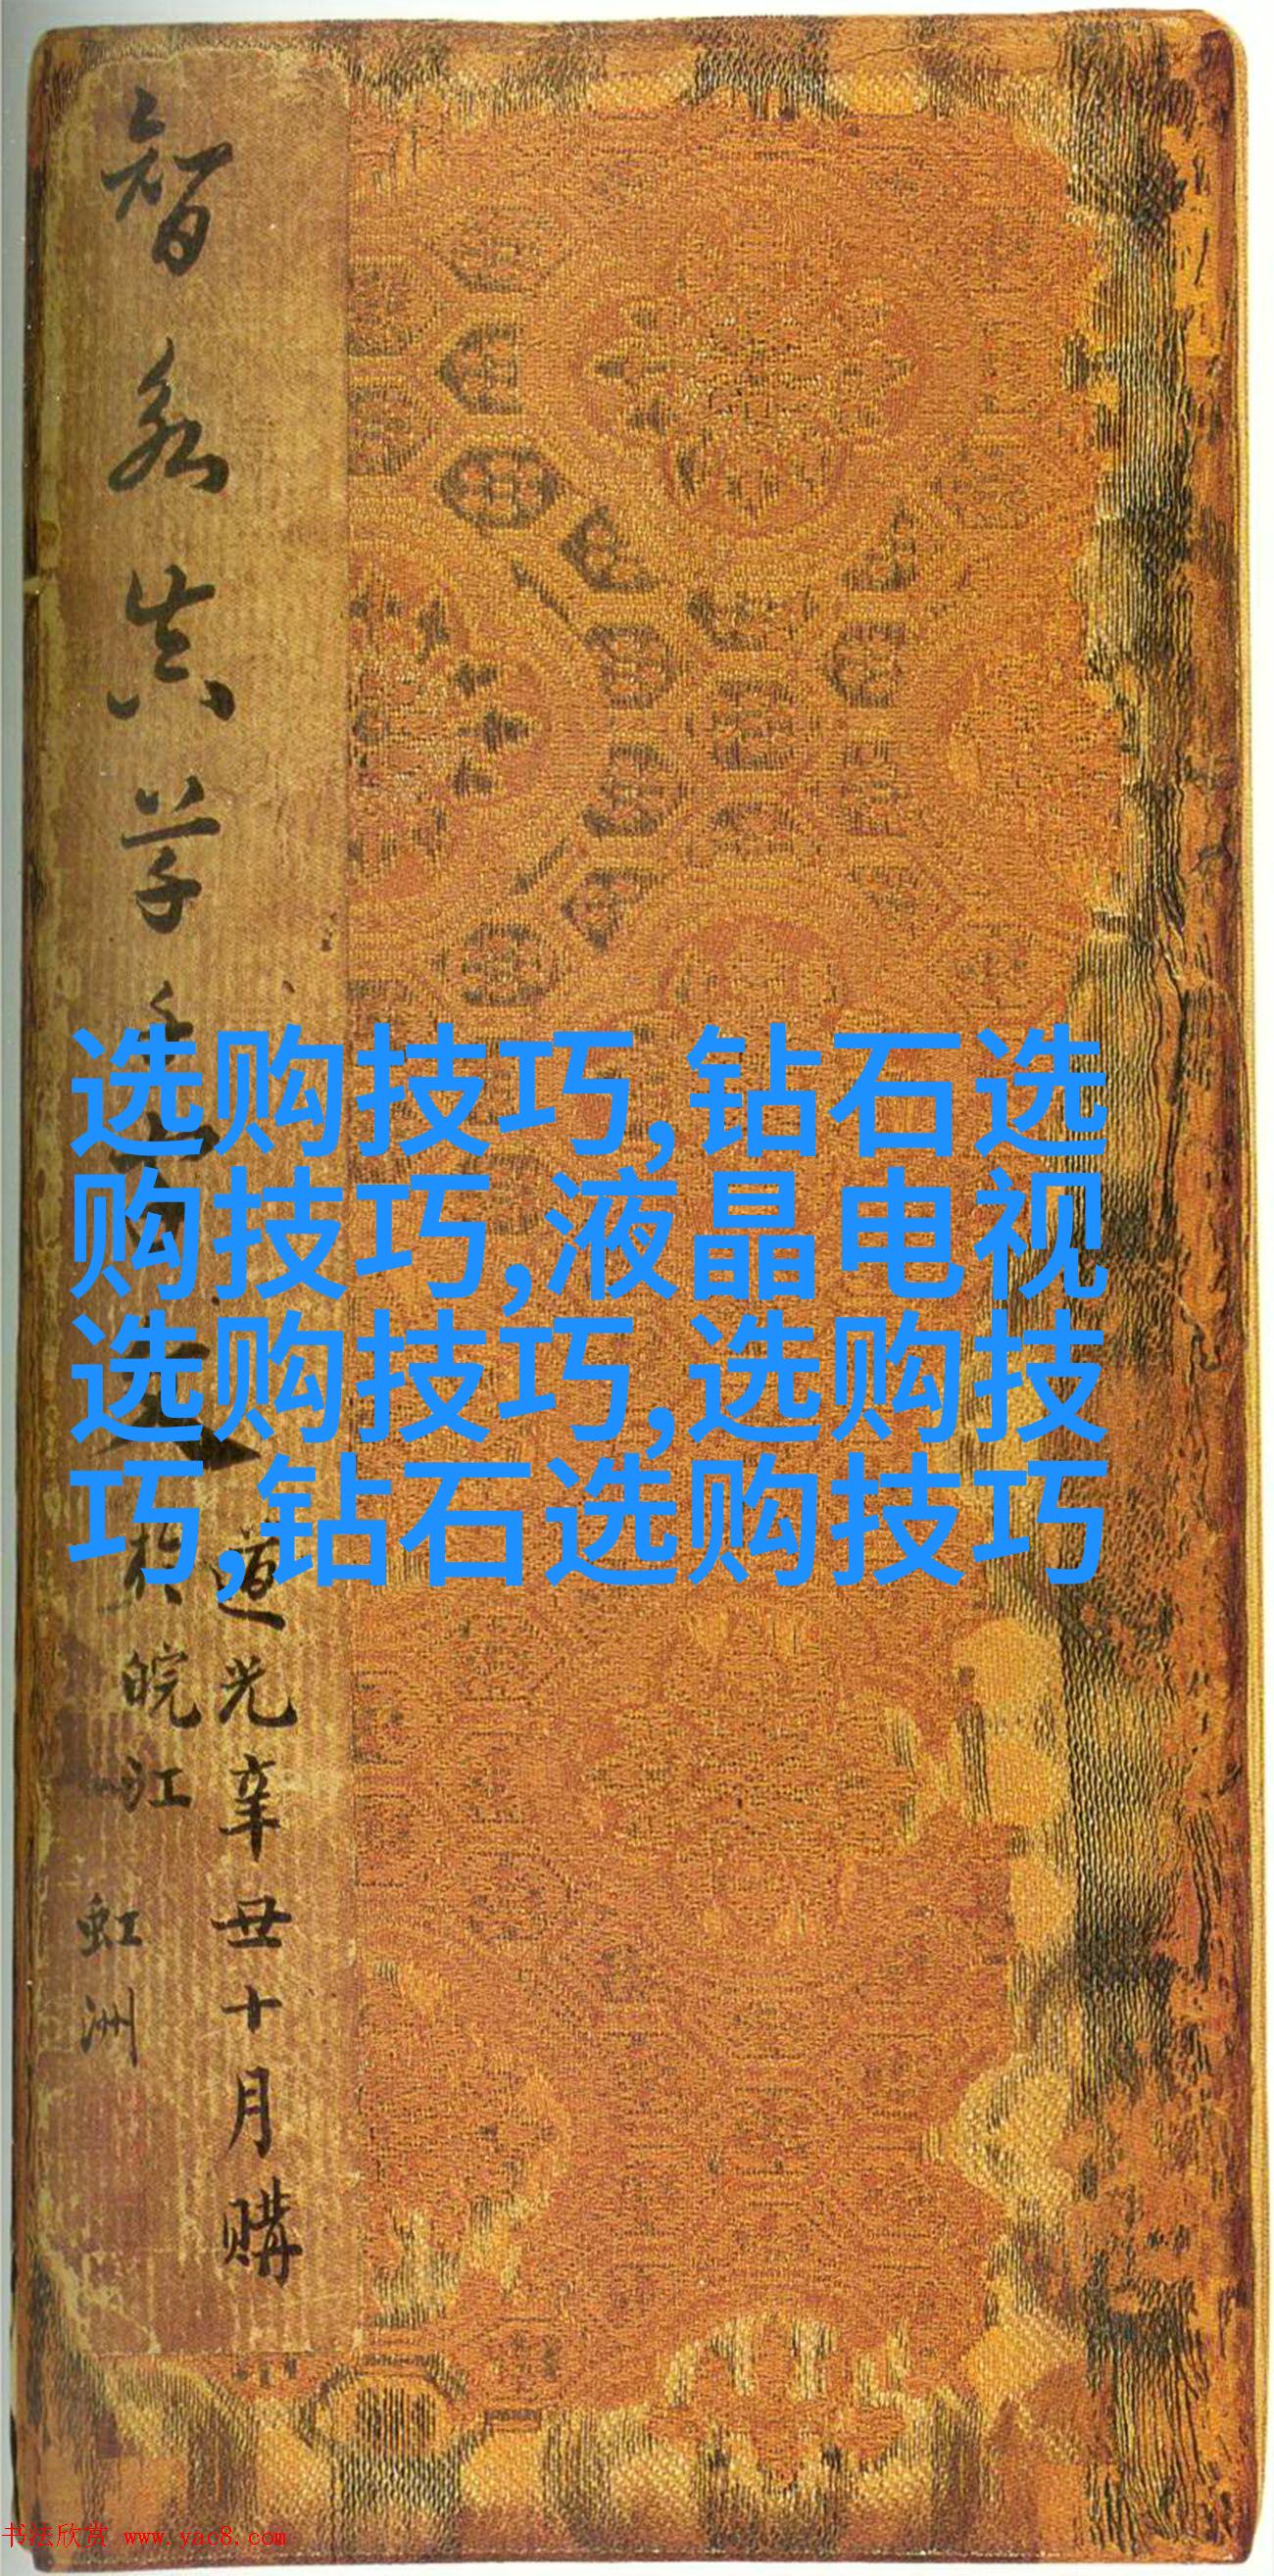 智永真草千
道光辛丑十月購
於皖江
虹洲
选购技巧,钻石选
购技巧,液晶电视
选购技巧,选购技
巧,钻石选购技巧
书法欣赏 www.yac8.com